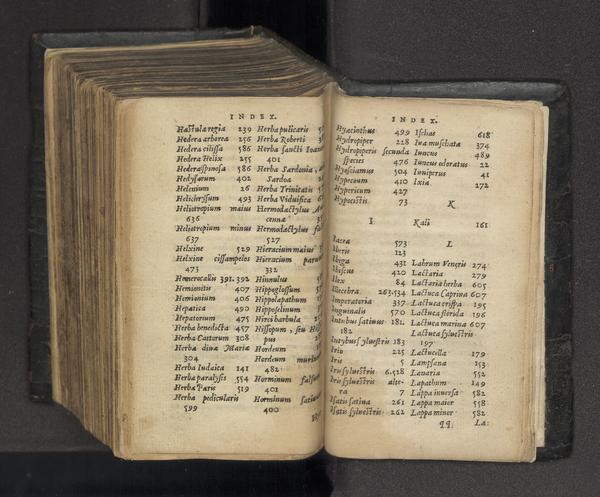 INDEX.
Hastula regia 239
Hedera arborea 256
Hedera cilissa 586
Hedera Helix 255
Hedera spinosa 586
Hedysarum 402
Helenium 26
Helichrysum 493
Heliotropium maius
636
Heliotropium minus
637
Helxine 529
Helxine cissampelos
473
Hemerocallis 391.392
Hemionitis 407
Hemionium 406
Hepatica 490
Hepatorium 475
Herba benedicta 457
Herba Castorum 308
Herba diuæ Mariæ
304
Herba Iudaica 141
Herba paralysis 554
Herba Paris 519
Herba pedicularis
599
Herba pulicaris
Herba Roberti
Herba sancti
401
Herba Sardonia,
Sardoa
Herba Trinitatis
Herba Viduifica
Hermodactylus
cenna
Hermodactylus
527
Hieracium maius
Hieracium
332
Hinnulus
Hippoglossum
Hippolapathum
Hipposelinum
Hirci barbula
Hissopum, seu
pus
Hordeum
Hordeum
482
Horminum
401
Horminum
400
INDEX.
Hyacinthus 499
Hydropiper 228
Hydropiperis secunda
species 476
Hyosciamus 504
Hypecoum 410
Hypericum 427
Hypocistis 73
I
Iacea 573
Iberis 123
Ibiga 431
Ibiscus 420
Ilex 84
Illecebra 263.534
Imperatoria 337
Inguinalis 570
Intubus satiuus 181.
182
Intybus syluestris 183
Irio 225
Iris 5
Iris syluestris 6.528
Iris syluestris alte-
ra 7
Isatis satiua 261
Isatis syluestris 262
Ischas 618
Iua muschata 374
Iuncus 489
Iuncus odoratus 22
Iuniperus 41
Ixia 272
K
Kali 161
L
Labrum Veneris 274
Lactaria 279
Lactaria herba 605
Lactuca Caprina 607
Lactuca crispa 195
Lactuca florida 196
Lactuca marina 607
Lactuca syluestris
197
Lactucilla 179
Lampsana 153
Lanaria 552
Lapathum 149
Lappa inuersa 582
Lappa maior 558
Lappa minor 582
qq: La: